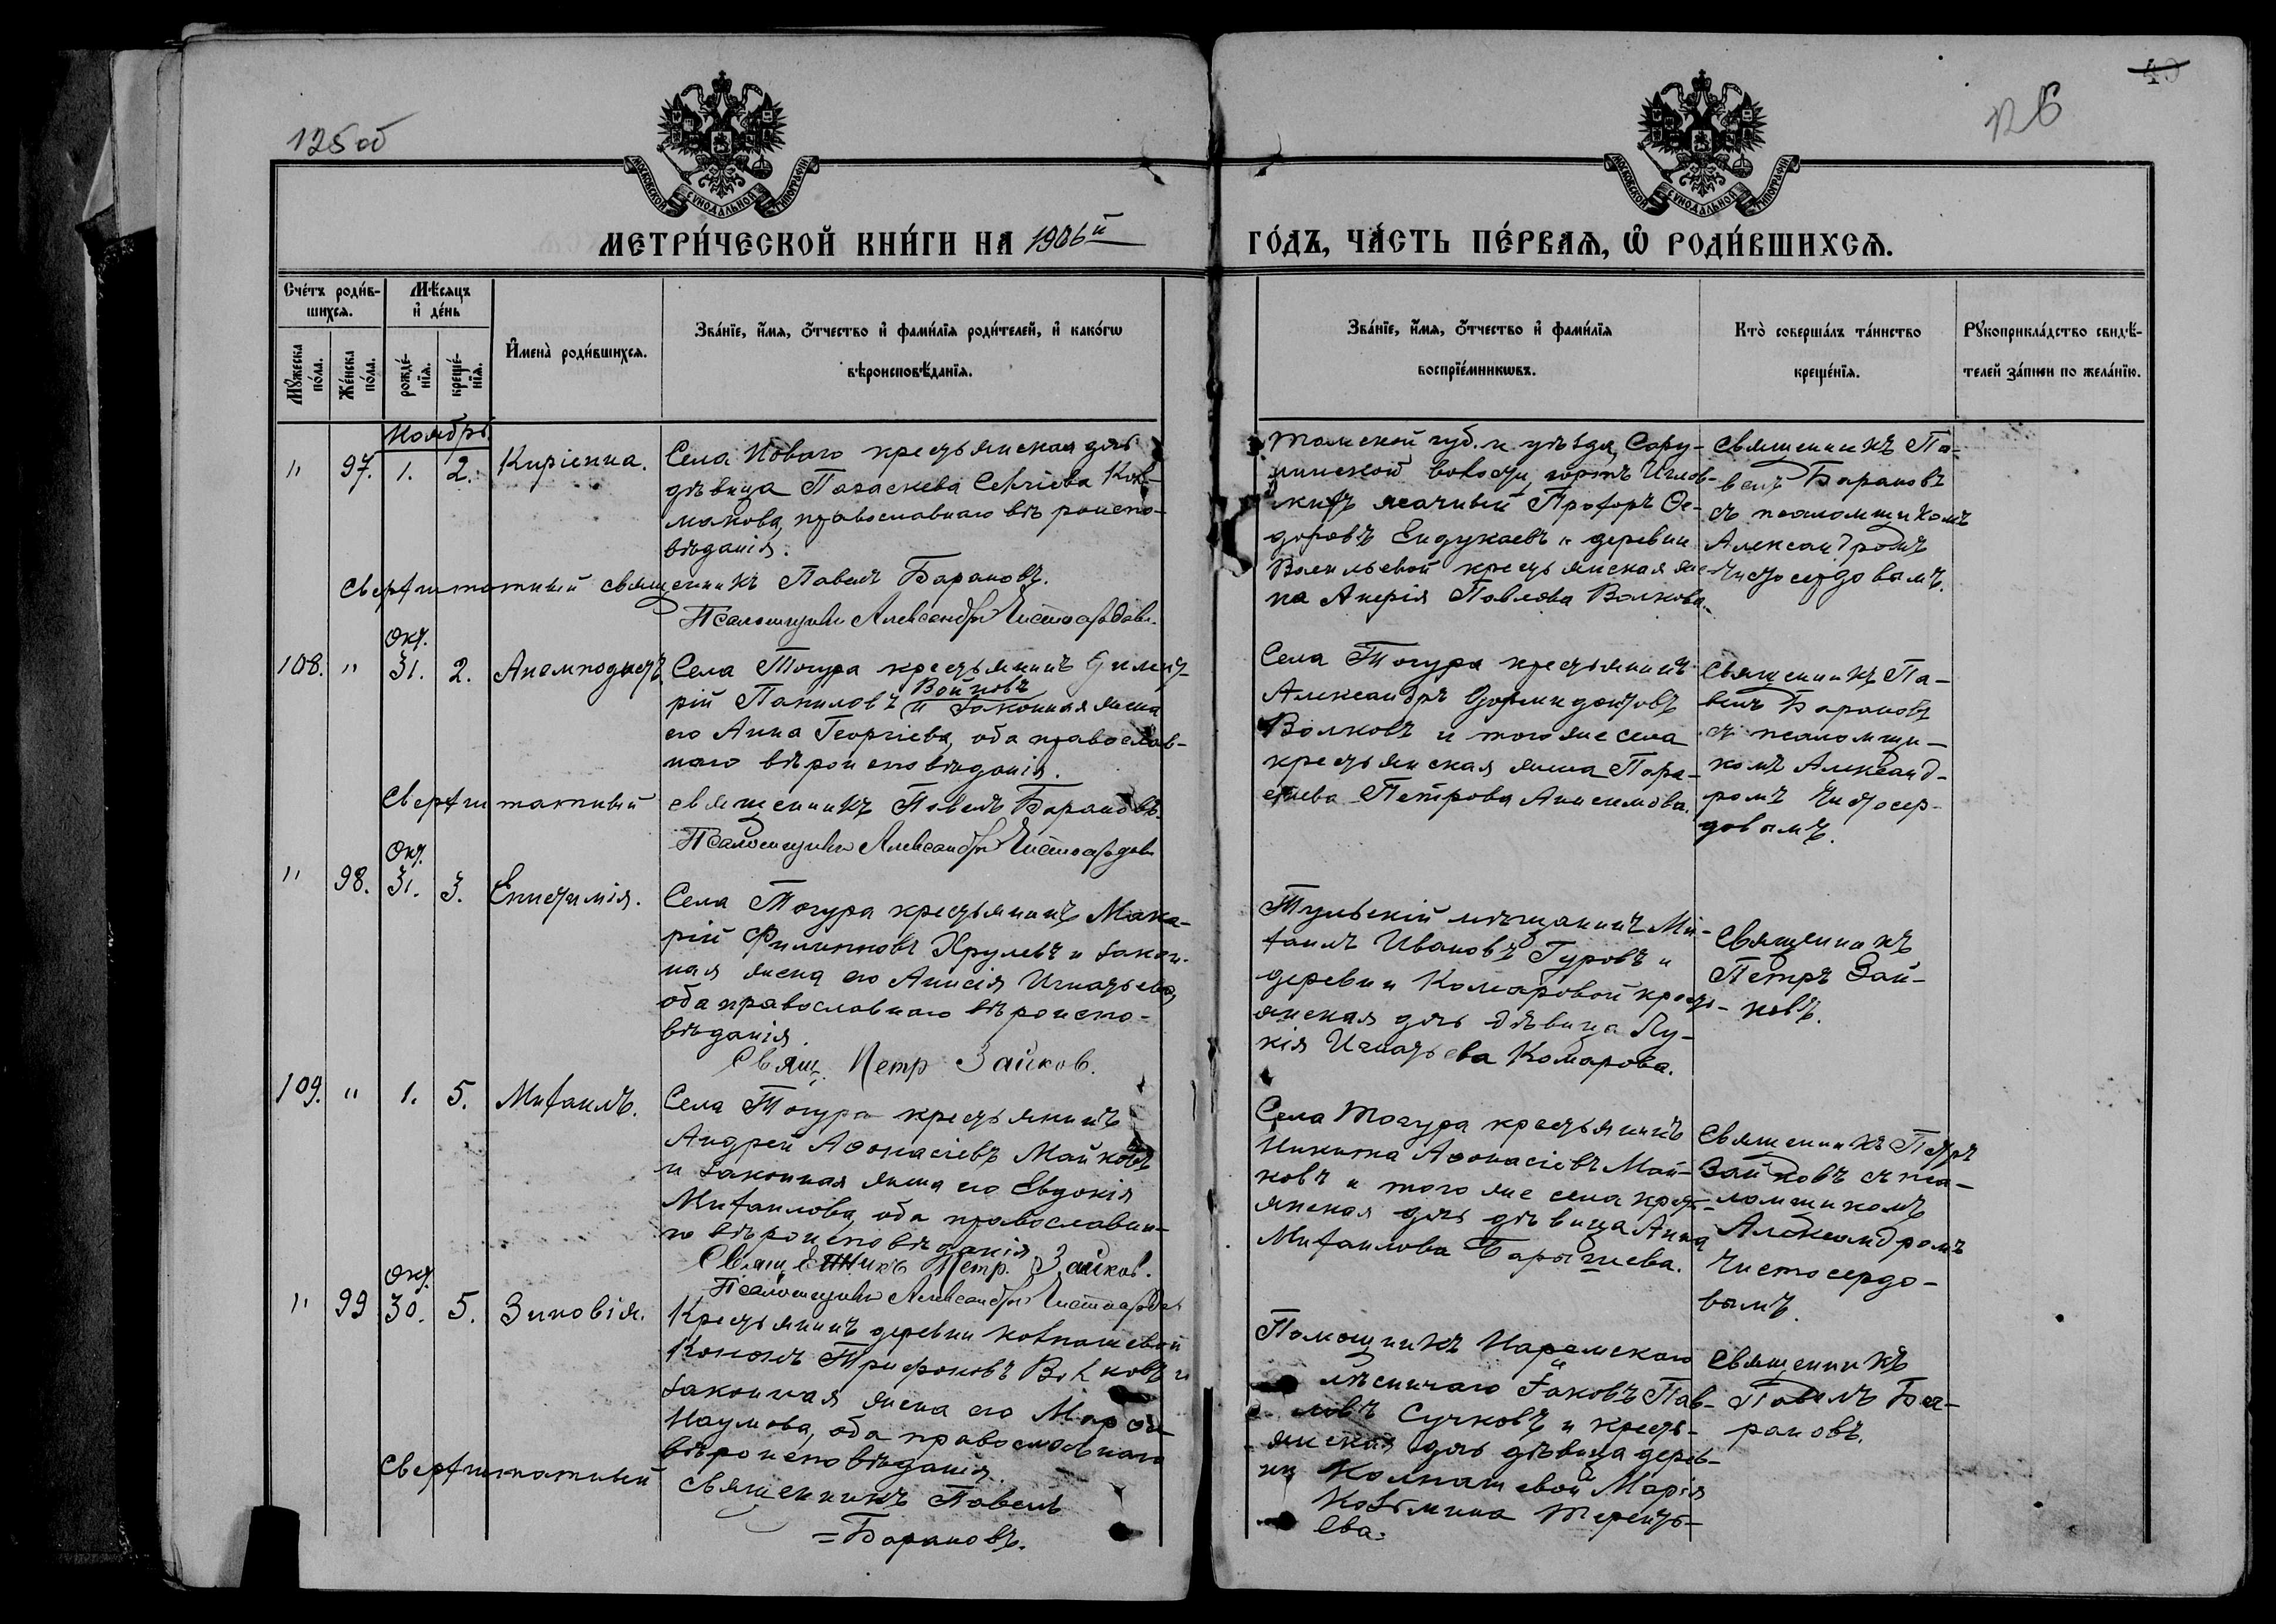 125 об
40
126
МОСКОВСКОЙ СѴНОДАЛЬНОЙ ТИПОГРАФІИ
МОСКОВСКОЙ СѴНОДАЛЬНОЙ ТИПОГРАФІИ
МЕТРИ́ЧЕСКОЙ КНИ́ГИ НА 1906й
ГО́ДЪ, ЧА́СТЬ ПЕ́РВАѦ, Ѡ҆ РОДИ́ВШИХСѦ.
Сче́тъ роди́в-
шихсѧ.
Мꙋ́жеска по́ла.
Же́нска по́ла.
Мѣ́сяцъ
и҆ де́нь
рожде́-
нїѧ.
креще́-
нїѧ.
И҆мена̀ роди́вшихсѧ.
Зва́нїе, и҆́мѧ, ѻ҆́тчество и҆ фами́лїѧ роди́телей, и҆ како́гѡ
вѣроисповѣ́данїѧ.
Зва́нїе, и҆́мѧ, ѻ҆́тчество и҆ фами́лїѧ
воспрїе́мникѡвъ.
Кто̀ соверша́лъ та́инство
креще́нїѧ.
Рꙋкоприкла́дство свидѣ́-
телей за́писи по жела́нїю.
Ноябрь.
" 97. 1. 2. Кирiенна.
Села Новаго крестьянская дочь
дѣвица Параскева Сергiева Кол-
макова, православнаго вѣроиспо-
вѣданiя.
Сверхштатный священникъ Павелъ Барановъ.
Псаломщикъ Александръ Чистосердовъ.
Томской губ. и уѣзда,
волости,
Прохоръ Ѳе-
доровъ и деревни
Васильевой крестьянская же-
на Павлова Волкова.
Священникъ Па-
велъ Барановъ
съ псаломщикомъ
Александромъ
Чистосердовымъ.
Окт.
108. " 31. 2. Анемподистъ
Села Тогура крестьянинъ Димит-
рiй Войновъ
и законная жена
его Анна Георгiева, оба православ-
наго вѣроисповѣданiя.
Сверхштатный священникъ Павелъ Барановъ.
Псаломщикъ Александръ Чистосердовъ
Села Тогура крестьянинъ
Александръ
Волковъ и того же села
крестьянская жена Пара-
скева Петрова Анисимова.
Священникъ Па-
велъ Барановъ
съ псаломщи-
комъ Александ-
ромъ Чистосер-
довымъ.
Окт.
" 98. 31. 3. Епистимiя.
Села Тогура крестьянинъ Мака-
рiй Филипповъ Хрулевъ и закон-
ная жена его Анисiя Игнатьева,
оба православнаго вѣроиспо-
вѣданiя.
Свящ. Петр Зайков.
Тульскiй мѣщанинъ Ми-
хаилъ Ивановъ Гуровъ и
деревни Комаровой кресть-
янская дочь дѣвица Лу-
кiя Игнатьева Комарова.
Священникъ
Петръ Зай-
ковъ.
109. " 1. 5. Михаилъ.
Села Тогура крестьянинъ
Андрей Аѳонасiевъ Майковъ
и законная жена его Евдокiя
Михаилова, оба православна-
го вѣроисповѣданiя.
Священникъ Петр. Зайков.
Псаломщикъ Александръ Чистосердов
Села Тогура крестьянинъ
Никита Аѳонасiевъ Май-
ковъ и того же села крест-
янская дочь дѣвица Анна
Михаилова Барышева.
Священникъ Петръ
Зайковъ съ пса-
ломщикомъ
Александромъ
Чистосердо-
вымъ.
Окт.
" 99 30. 5. Зиновiя.
Крестьянинъ деревни Колпашевой
Кононъ Трифоновъ Волковъ и
законная жена его Марѳа
Наумова, оба православнаго
вѣроисповѣданiя.
Сверхштатный священникъ Павелъ
=Барановъ.
Помощникъ Нарымскаго
лѣсничаго Iаковъ Пав-
ловъ Сучковъ и кресть-
янская дочь дѣвица дерев-
ни Колпашевой Марiя
Козьмина Теренть-
ева.
Священникъ
Павелъ Ба-
рановъ.